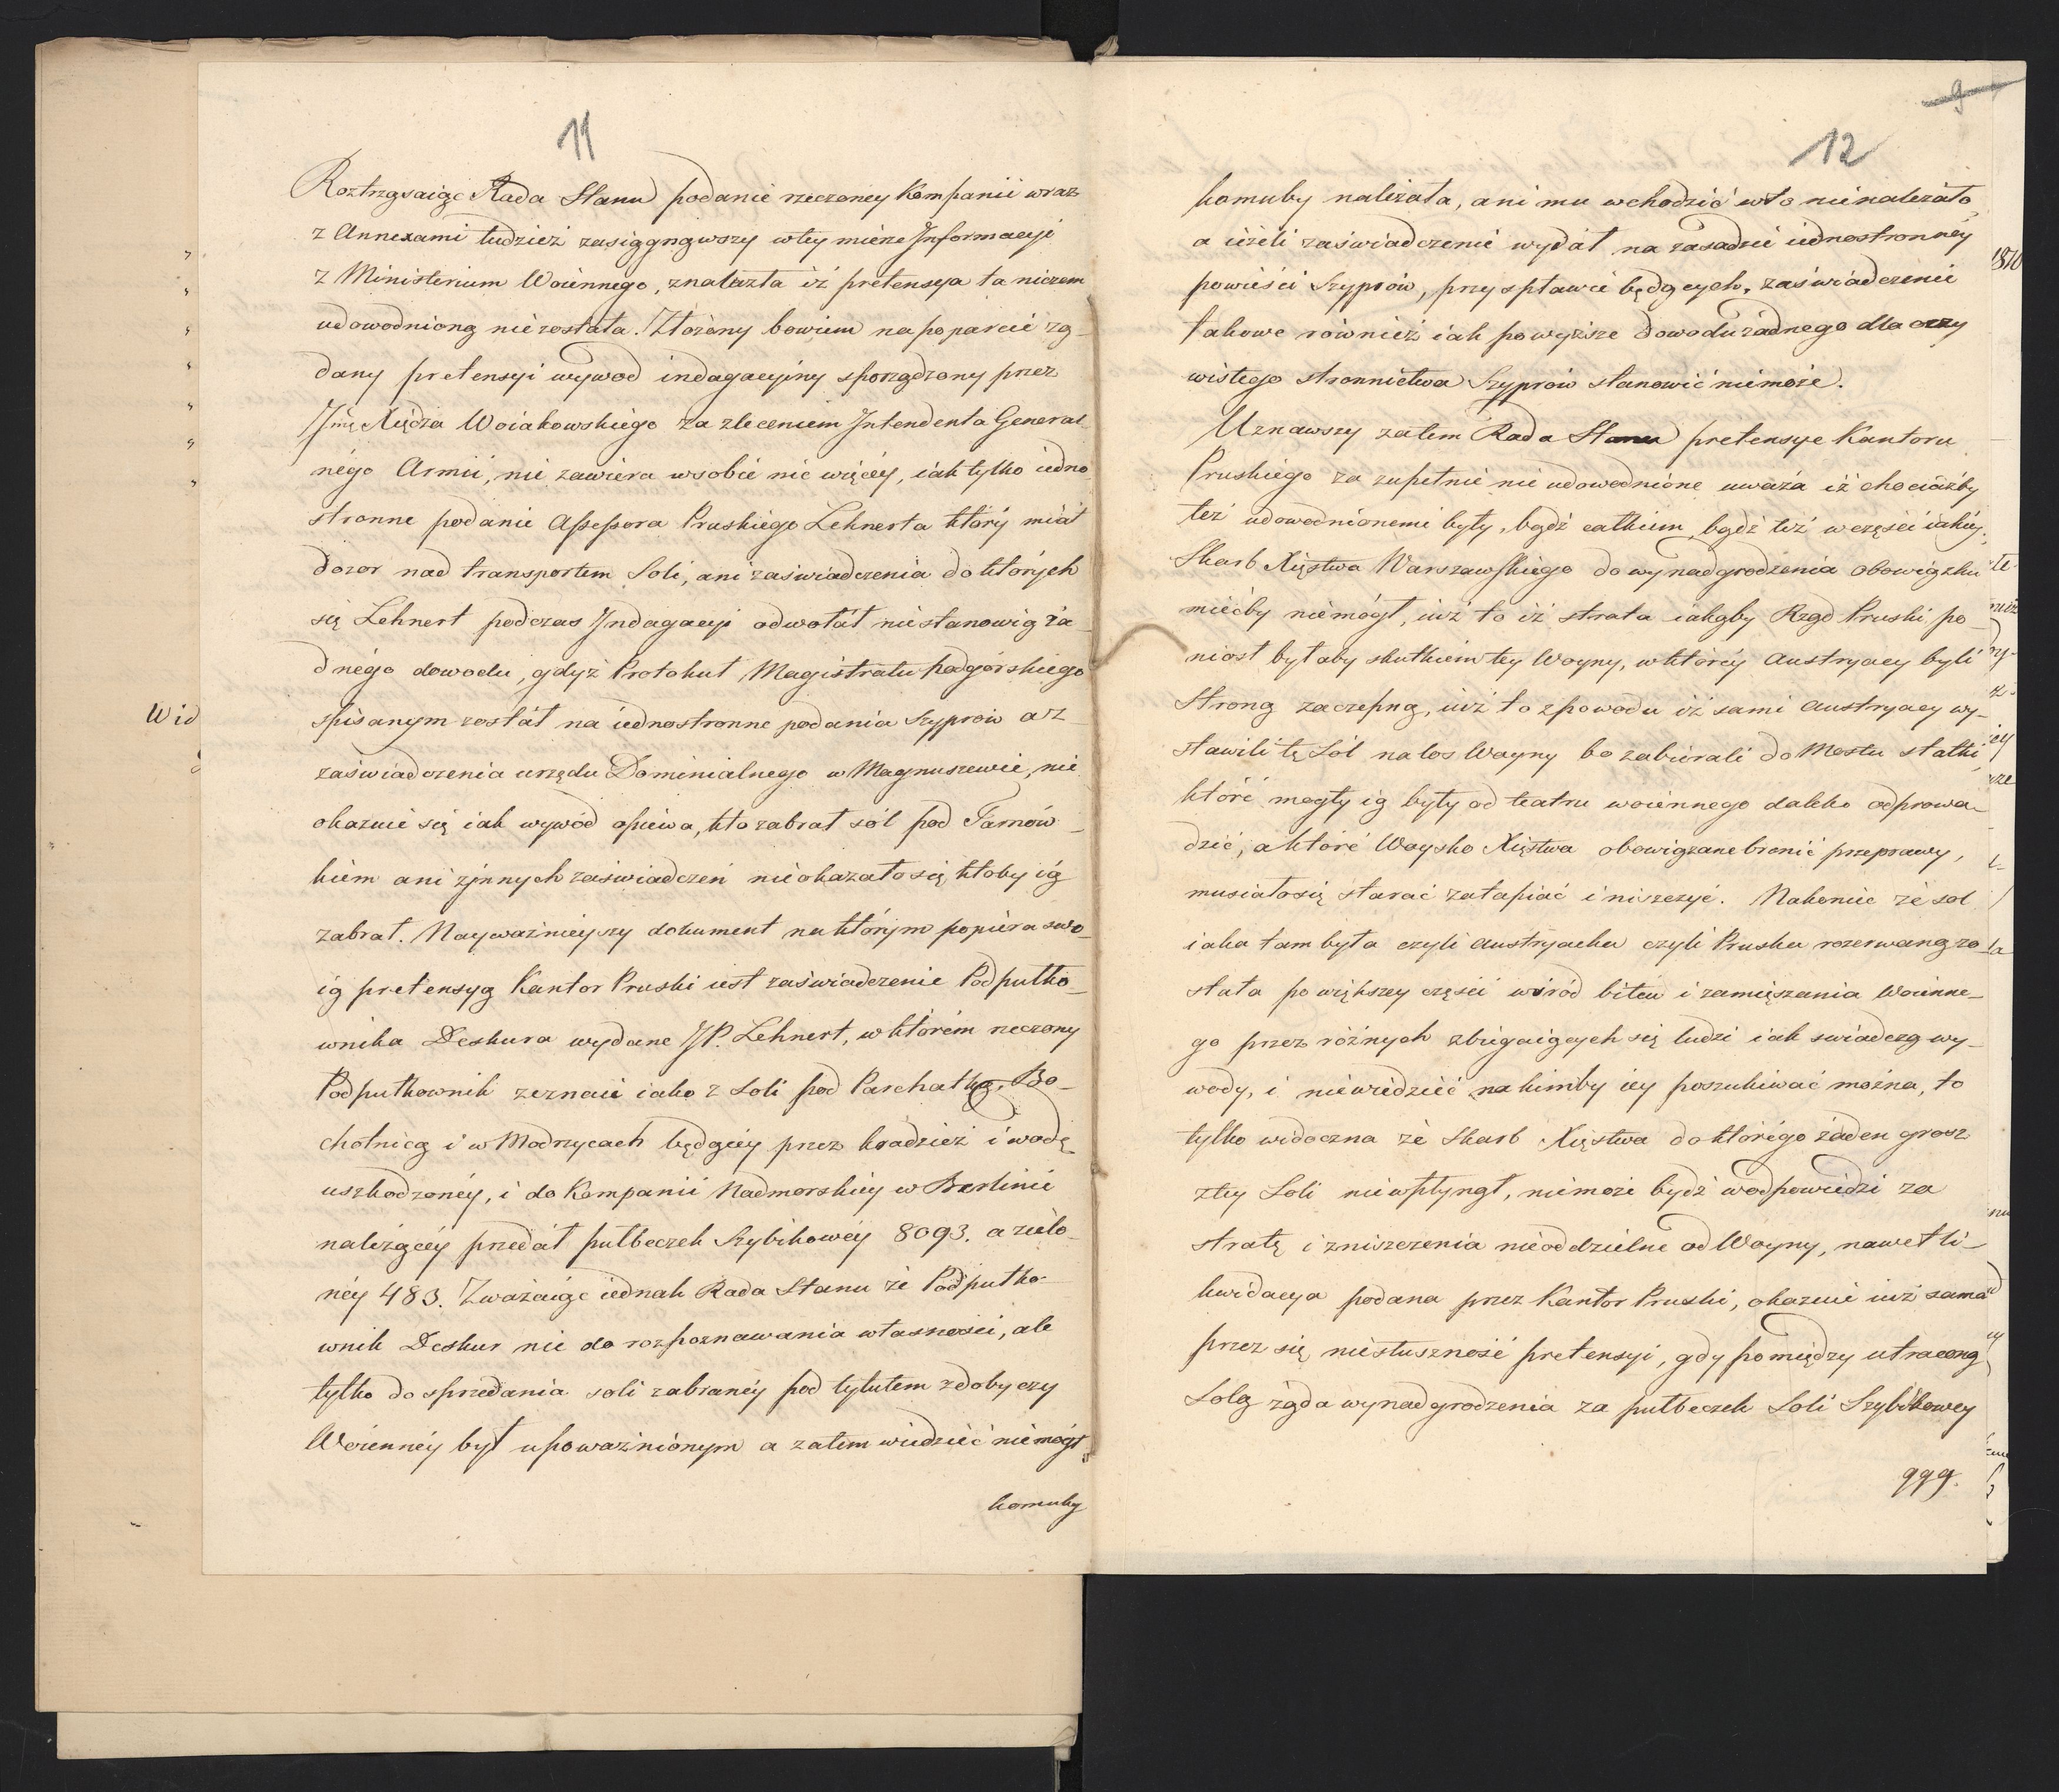 11
Roztrząsaiąc Rada Stanu podanie rzeczoney Kompanii wraz
z Annexami tudzież zasiągnąwszy w tey mierze Jnformacyi
z Ministerium Woiennego, znalazła iż pretensya ta niczem
udowodnioną nie została. Złożony bowiem na poparcie żą-
dany pretensyi wywod indagacyiny sporządzony przez
Jmę Xiędza Woiakowskiego za zleceniem Jntendenta General-
négo Armii, nie zawiera w sobie nic więcéy, iak tylko iedno
stronne podanie Assessora Pruskiego Lehnerta który miał
dozor nad transportem Soli, ani zaświadczenia do których
się Lehnert podczas Jndagacyi odwołał nie stanowią ża-
dnégo dowodu, gdyż Protokuł Magistratu Podgórskiego
spisanym został na iednostronne podania Szyprow a z
zaświadczenia urzędu Dominialnego w Magnuszewie, nie
okazuie się iak wywód opiewa, kto zabrał sól pod Tarnów-
kiem ani z jnnych zaświadczeń nie okazało się, ktoby ią
zabrał. Nayważnieyszy dokument na którym popiéra swo-
ią pretensyą Kantor Pruski iest zaświadczenie Podpułko-
wnika Deskura wydane JP. Lehnert, w którém rzeczony
Podpułkownik zeznaie iako z Soli pod Parchatką, Bo-
chotnicą i w Modrzycach będącéy przez kradzież i wodę
uszkodzonéy, i do Kompanii Nadmorskiéy w Berlinie
należącéy przedał pułbeczek Szybikowéy 8093. a zielo-
néy 483. Zważaiąc iednak Rada Stanu że Podpułko-
wnik Deskur nie do rozpoznawania własności, ale
tylko do sprzedania soli zabranéy pod tytułem zdobyczy
Woiennéy był upoważnionym a zatem wiedzieć nie mógł
komuby
Wid
9
12
komuby należała, ani mu wchodzić w to nie należało,
a ieżeli zaświadczenie wydał na zasadzie iednostronnéy
powieści Szyprów, przy spławie będących, zaświadczenie
takowe również iak powyższe dowodu żadnego dla oczy
wistego stronnictwa Szyprów stanowić nie może.
Uznawszy zatem Rada Stanu pretensye Kantoru
Pruskiego za zupełnie nie udowodnione uważa iż chociażby
też udowodnionemi były, bądź całkiem, bądź też w części iakiéy,
Skarb Xięstwa Warszawskiego do wynadgrodzenia obowiązku
miećby nie mógł, iuż to iż strata iakąby Rząd Pruski po-
niósł byłaby skutkiem tey Woyny, w któréy Austryacy byli
stroną zaczepną, iuż to z powodu iż sami Austryacy wy-
stawili tę Sól na los Woyny bo zabiérali do Mostu statki
któré mogły ią były od teatru woiennego daleko odprowa-
dzić, a któré Woysko Xięstwa obowiązane bronić przeprawy,
musiało się starać zatapiać i niszczyć. Nakoniec że sol
iaka tam była czyli Austryacka czyli Pruska rozerwaną zo-
stała po większey części wśród bitew i zamięszania Woienne-
go przez różnych zbiegaiących się ludzi iak swiadczą wy-
wody, i nie widzieć na kimby iey poszukiwać można, to
tylko widoczna że Skarb Xięstwa do którégo żaden grosz
z téy Soli nie wpłynął, nie może bydź w odpowiedzi za
stratę i zniszczenia nieoddzielne od Woyny, nawet li-
kwidacya podana przez Kantor Pruski, okazuie iuż sama
przez się niesłuszność pretensyi, gdy pomiędzy utraconą
Solą żąda wynadgrodzenia za pułbeczek Soli Szybikowey
999.
1810